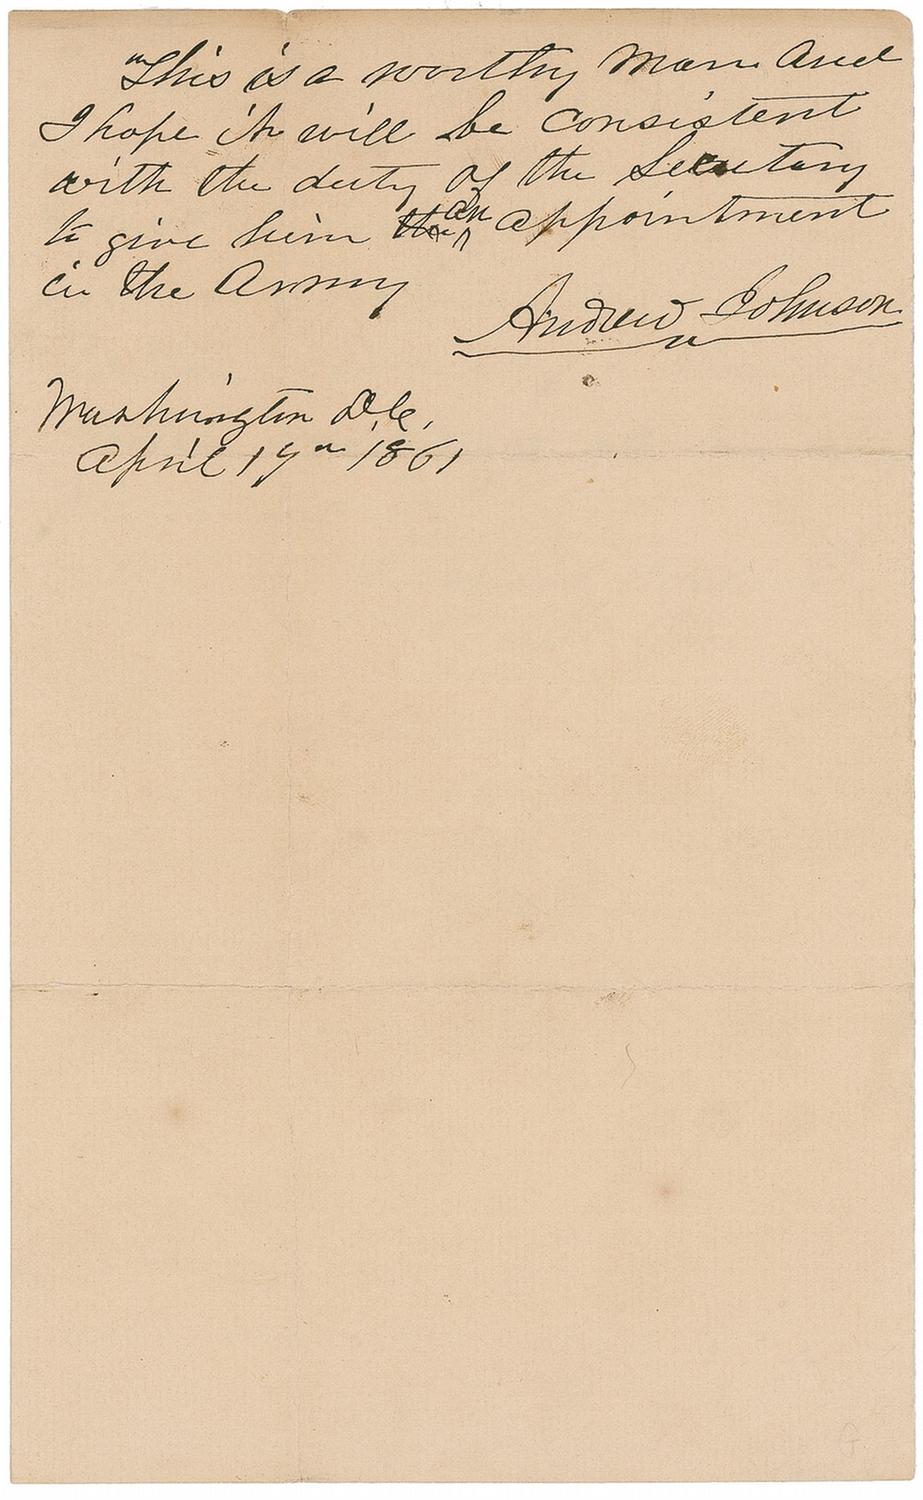 "This is a worthy man and
I hope it will be consistent
with the duty of the Secretary
to give him the an appointment
in the Army
Andrew Johnson
Washington D.C.
April 17th 1861